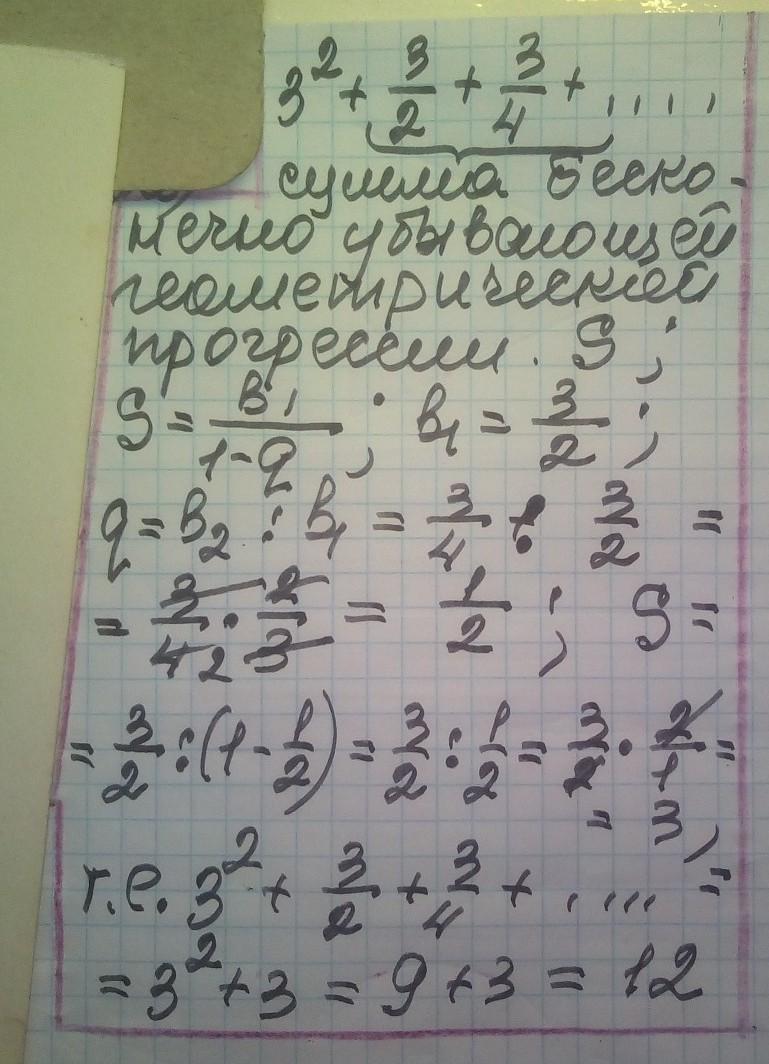 3² + 3/2 + 3/4 + , , , ,
сумма беско-
нечно убывающей
геометрической
прогрессии. S ;
S = в₁/(1-q) ; в₁ = 3/2 ;
q = в₂ : в₁ = 3/4 : 3/2 =
= 3/4 · 2/3 = 1/2 ; S =
= 3/2 : (1 - 1/2) = 3/2 : 1/2 = 3/2 · 2/1 =
= 3,
т.е. 3² + 3/2 + 3/4 + , ... =
= 3² + 3 = 9 + 3 = 12